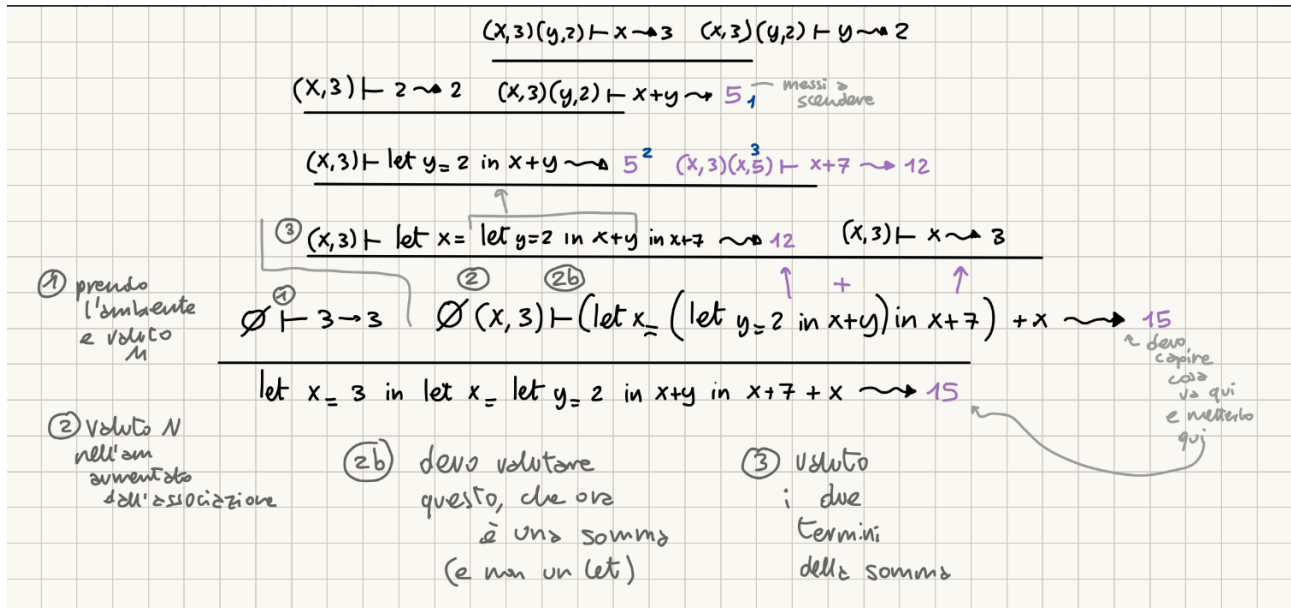 (x,3)(y,2) ⊢ x ⇝ 3   (x,3)(y,2) ⊢ y ⇝ 2
(x,3) ⊢ 2 ⇝ 2   (x,3)(y,2) ⊢ x+y ⇝ 5 1   messi a
scendere
(x,3) ⊢ let y=2 in x+y ⇝ 5 2   (x,3)(x,5) 3 ⊢ x+7 ⇝ 12
③ (x,3) ⊢ let x= let y=2 in x+y in x+7 ⇝ 12   (x,3) ⊢ x ⇝ 3
② 2b ↑ + ↑
① prendo
l'ambiente
e valuto
M
① ∅ ⊢ 3 → 3   ∅ (x,3) ⊢ (let x= (let y=2 in x+y) in x+7) + x ⇝ 15
let x=3 in let x= let y=2 in x+y in x+7 + x ⇝ 15
devo
capire
cosa
va qui
e metterlo
qui
② valuto N
nell'am
aumentato
dall'associazione
2b devo valutare
questo, che ora
è una somma
(e non un let)
③ valuto
i due
termini
della somma